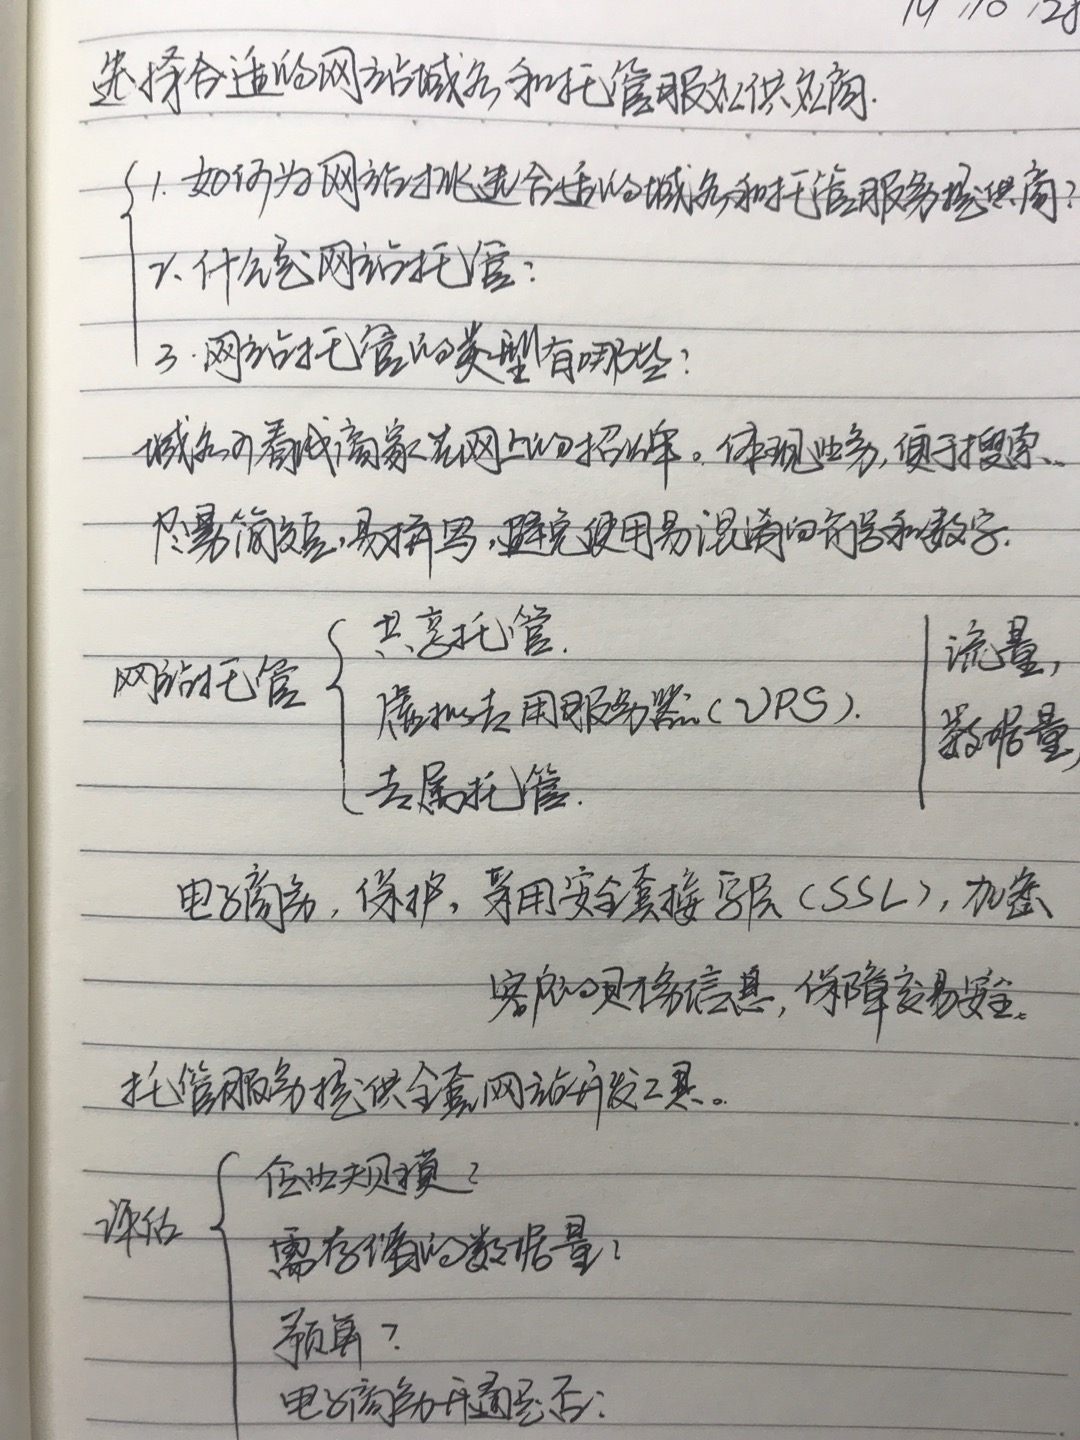 选择合适的网站域名和托管服务供应商.
1. 如何为网站挑选合适的域名和托管服务提供商?
2. 什么是网站托管?
3. 网站托管的类型有哪些?
域名可看成商家在网上的招牌。体现业务,便于搜索.
尽量简短,易拼写,避免使用易混淆的符号和数字.
网站托管
共享托管.
虚拟专用服务器(VPS).
专属托管.
流量,
数据量,
电子商务,保护,采用安全套接字层(SSL),加密
客户的财务信息,保障交易安全。
托管服务提供全套网站开发工具。
评估
企业规模?
需存储的数据量?
预算?
电子商务开通是否?